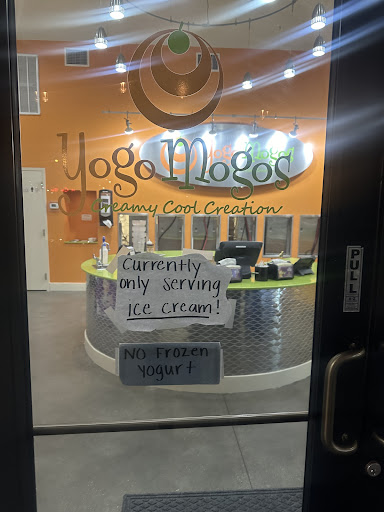 Yogo Mogos
Creamy Cool Creation
Currently
only serving
ice cream!
No Frozen
Yogurt
PULL